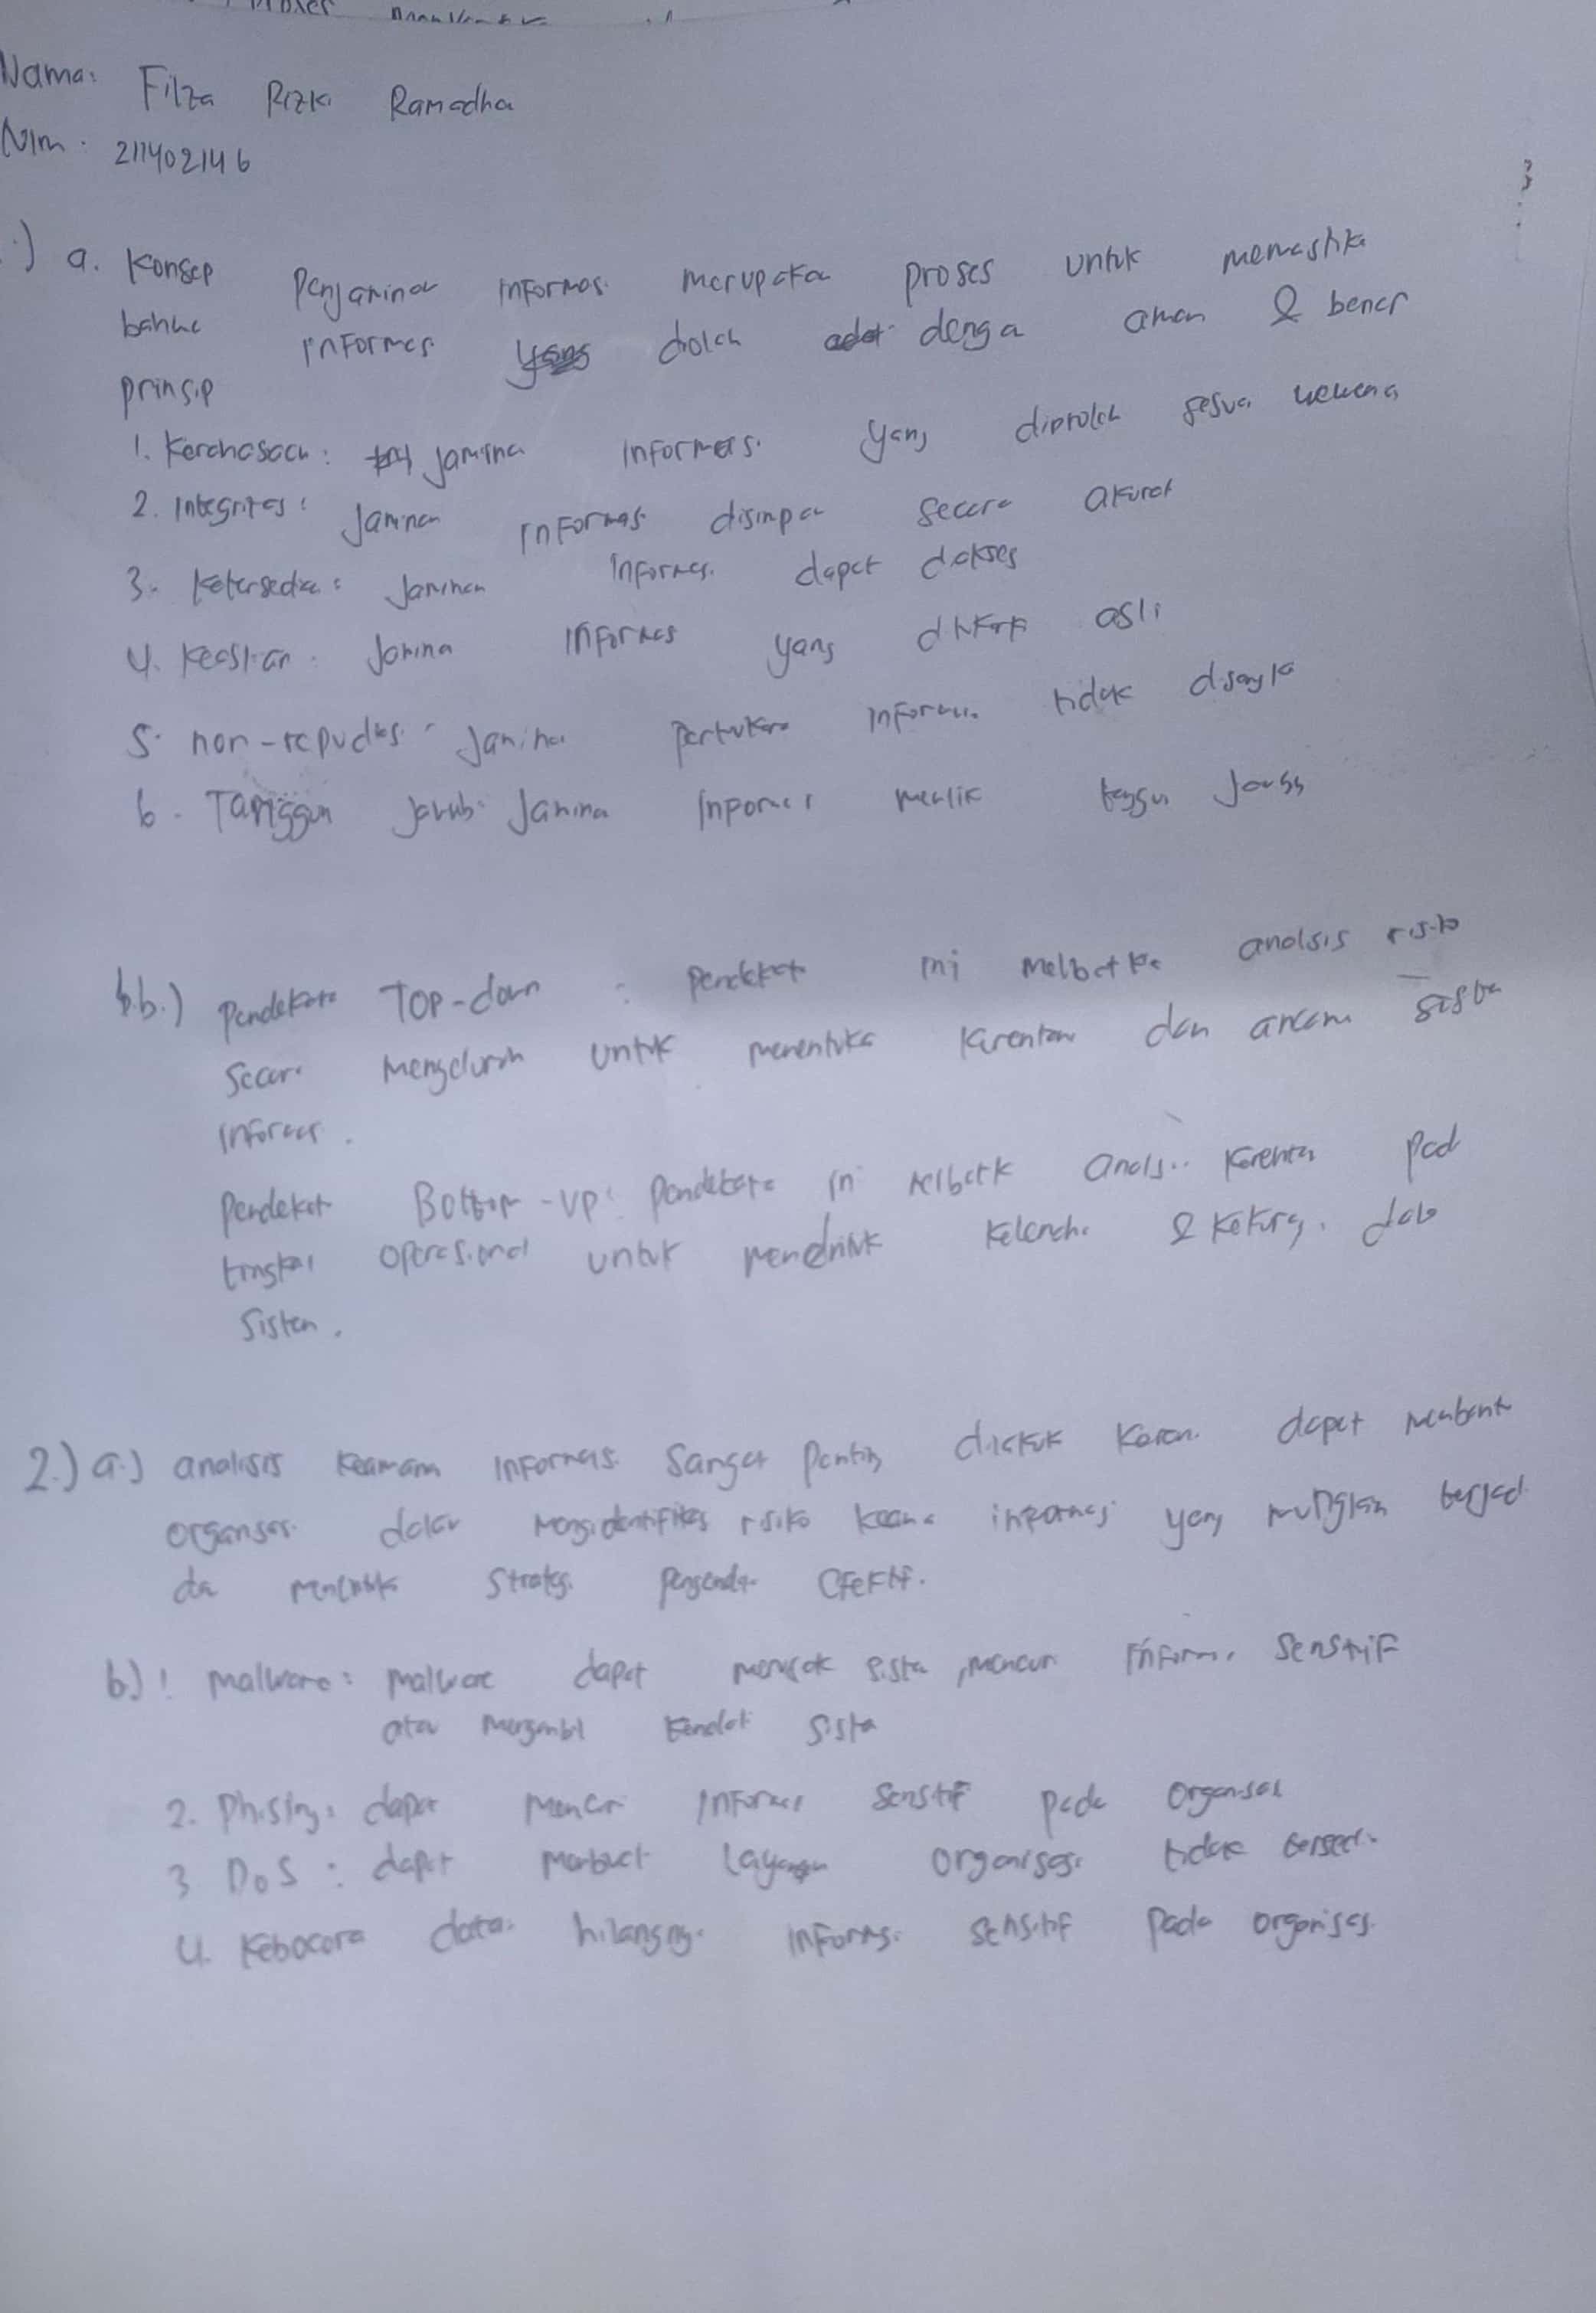 Nama: Filza Rizki Ramadha
Nim: 211402146
.) a. Konsep Penjaminan Informasi merupakan proses untuk memastika
bahwa informasi diolah dengan aman & benar
prinsip
1. Kerahasaan: jamina informasi yang diproleh sesuai wewena
2. Integritas: Jaminan informasi disimpan secara akurat
3. Ketersedia: Jaminan informasi dapat diakses
4. Keaslian: Jamina informas yang asli
5. non-repudias: Jamina pertukara informasi tidak disangka
6. Tanggun Jawab: Jamina inpormasi tanggun Jawab
b.) Pendekata Top-down: pendekat ini melbatka analsis risiko
secara menyeluruh untuk menentuka kerentan dan ancam sistem
informas.
Pendekat Bottom-up: pendekata ini melbatk analisi kerenta pad
tingkat operasional untuk kelemaha & kekurang dala
sistem.
2.) a.) analisis keamana informasi sangat penting karena dapat membantu
organisasi dalam mengidentifikas risiko keamana inpormasi yang mungkin terjadi
dan strategi efektif.
b) 1. malware: malware dapat merusak sistem, mencuri informasi senstif
atau mengambil kendali sistem
2. Phising: dapat mencuri informasi senstif pada organisas
3 DoS: dapat membuat layanan organisasi tidak tersedia
4. Kebocora data: hilangny informasi sensitif pada organisasi.